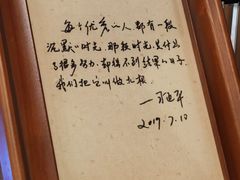 每个优秀的人都有一段
沉默的时光。那段时光,是付出
了很多努力,却得不到结果的日子,
我们把它叫做扎根
2019.7.10